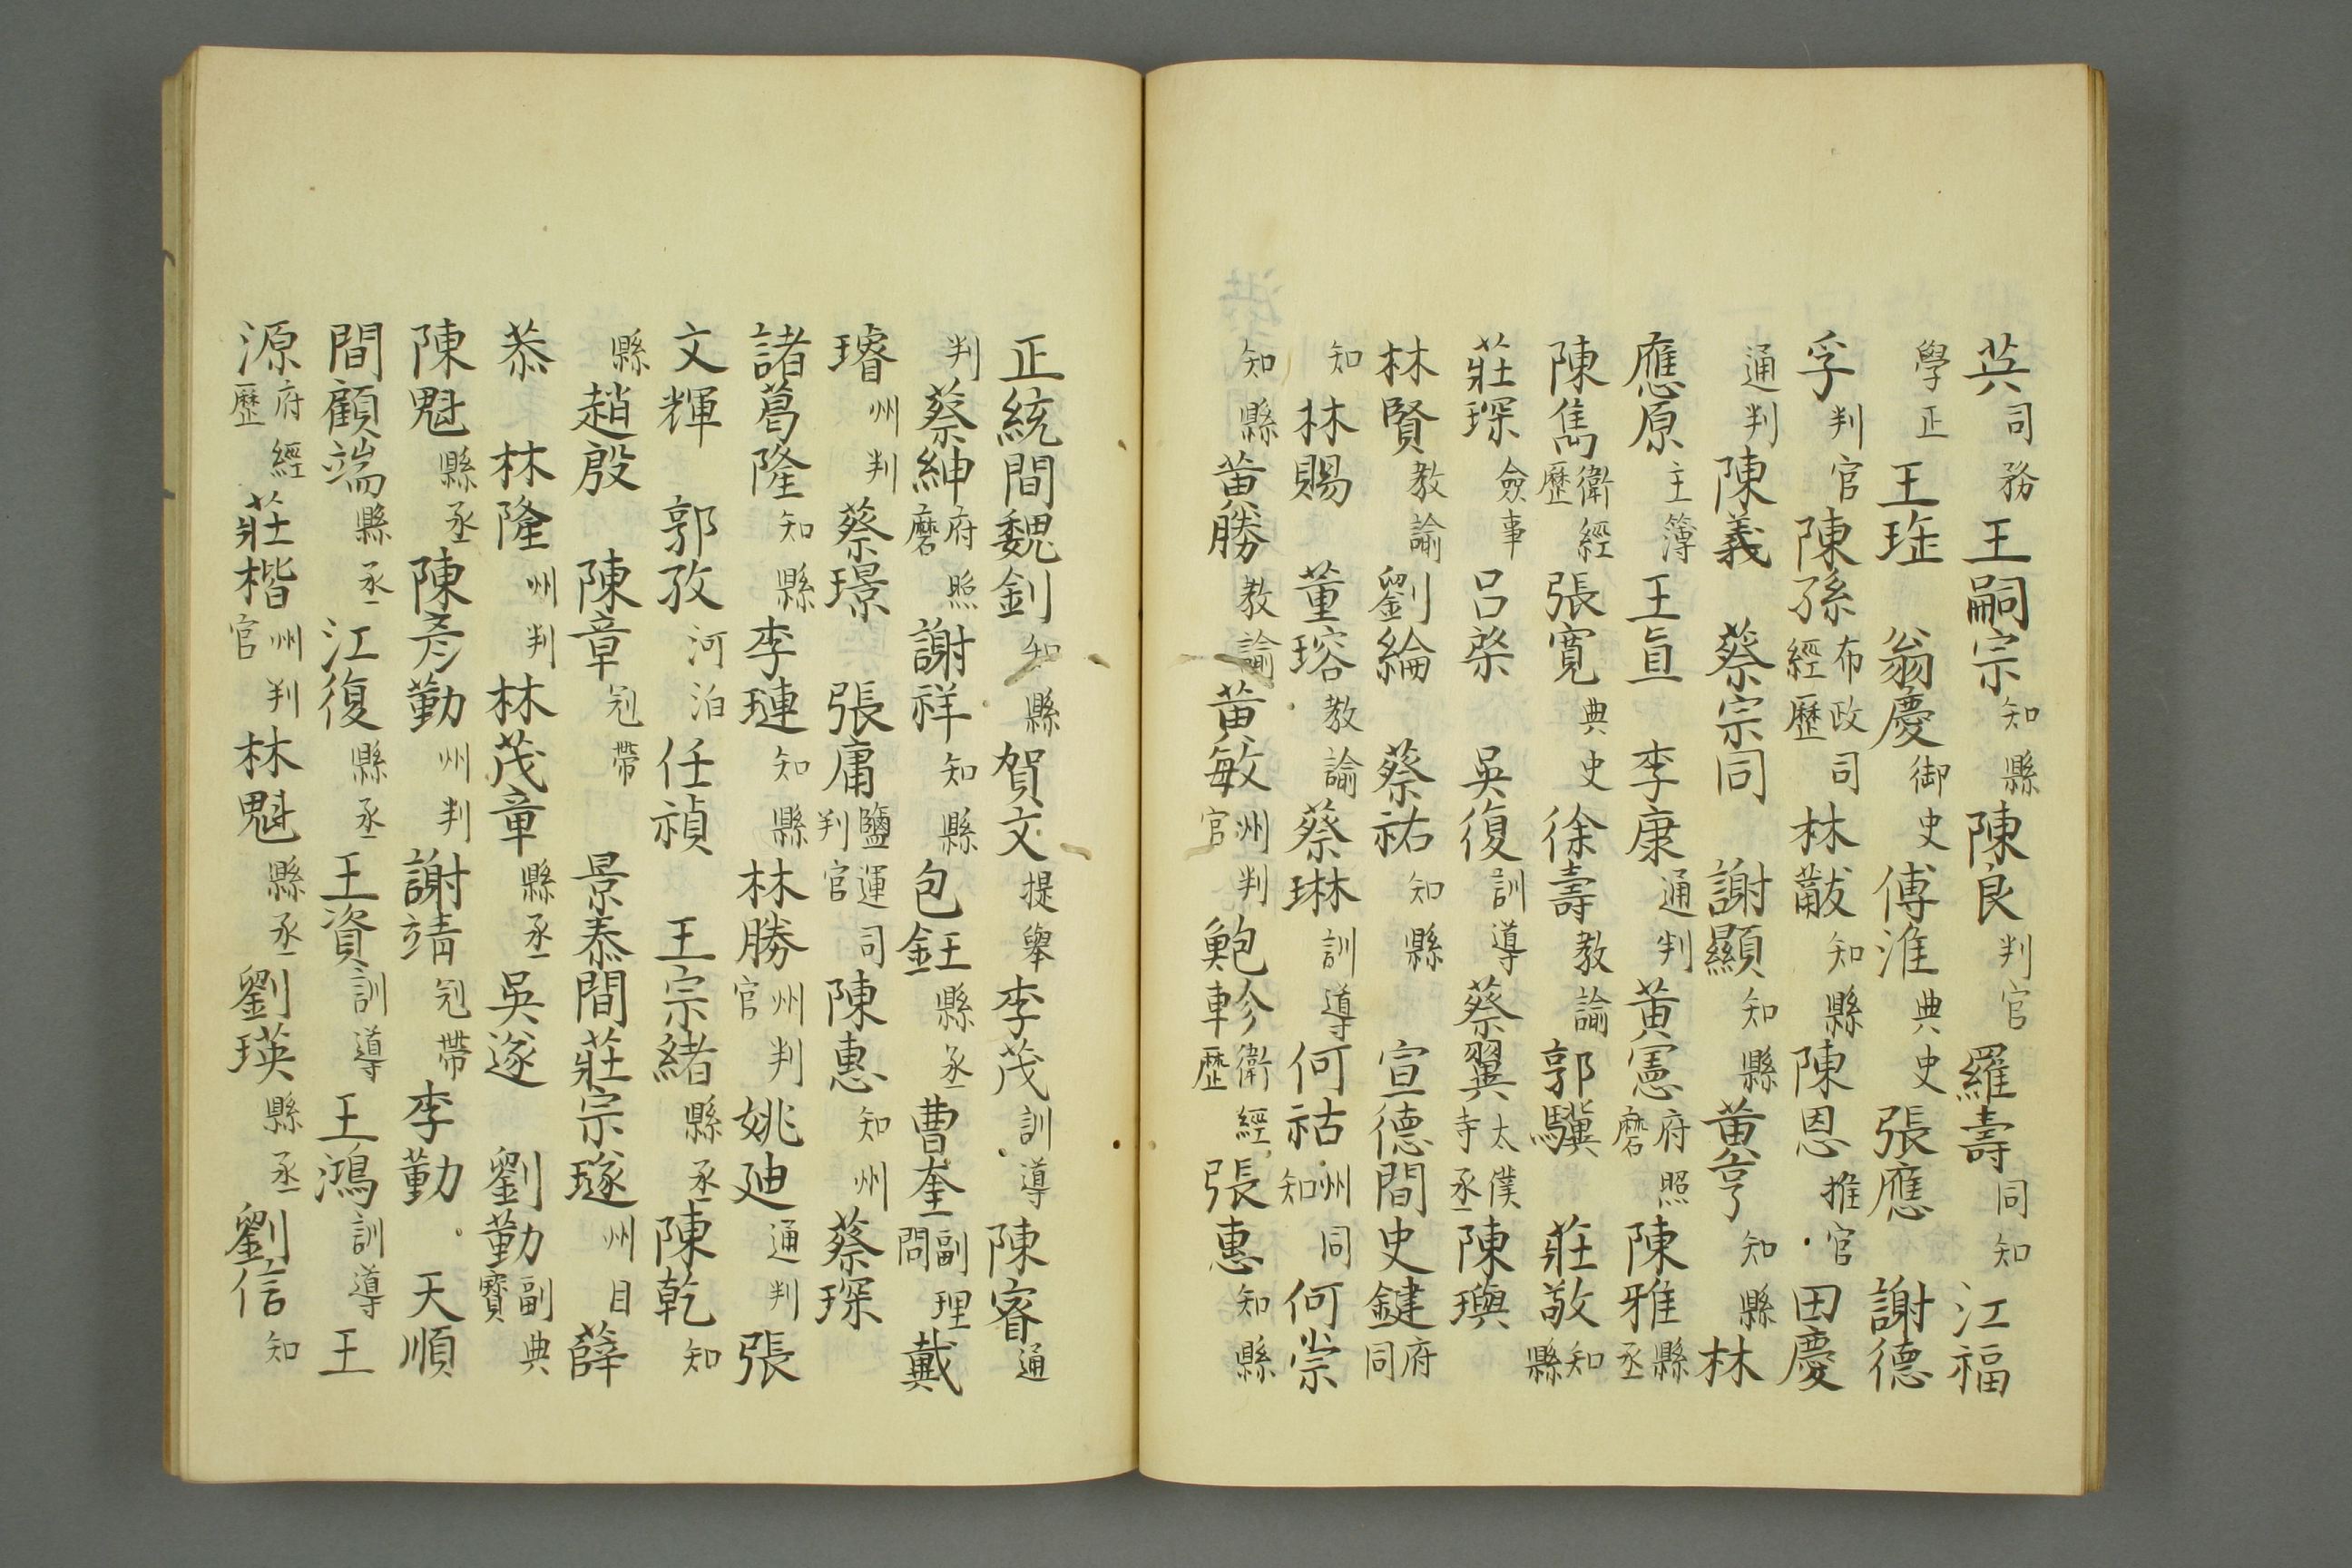 英司務王嗣宗知縣陳良判官羅壽同知江福
學正王琟翁慶御史傅淮典史張應謝德
孚判官陳孫布政司經歷林黻知縣陳恩推官田慶
通判陳義蔡宗同謝顯知縣黃亨知縣林
應原主簿王亶李康通判黃憲府照磨陳雅縣丞
陳雋衛經歷張寬典史徐壽教諭郭驥莊敬知縣
莊琛僉事呂棨吳復訓導蔡翼太僕寺丞陳璵
林賢教諭劉綸蔡祐知縣宣德間史鍵府同
知林賜董瑢教諭蔡琳訓導何祜州同知何崇
知縣黃勝教諭黃敏州判官鮑軫衛經歷張惠知縣
正統間魏釗知縣賀文提舉李茂訓導陳睿通
判蔡紳府照磨謝祥知縣包鈺縣丞曹奎副理問戴
璿州判蔡璟張庸鹽運司判官陳惠知州蔡琛
諸葛隆知縣李璉知縣林勝州判官姚廸通判張
文輝郭孜河泊任禎王宗緒縣丞陳乾知
縣趙殷陳章冠帶景泰間莊宗璲州目薛
恭林隆州判林茂章縣丞吳遂劉勤副典寶
陳魁縣丞陳彥勤州判謝靖冠帶李勤天順
間顧端縣丞江復縣丞王資訓導王鴻訓導王
源府經歷莊楷州判官林魁縣丞劉瑛縣丞劉信知